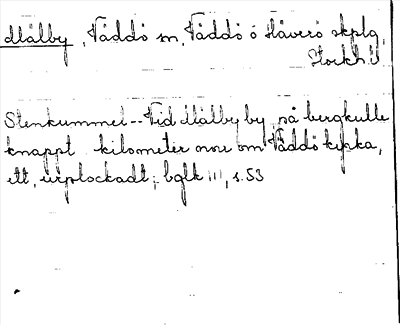 Mälby, Väddö sn, Väddö o Häverö skplg,
Stockh.
Stenkummel--Vid Mälby by på bergkulle
knappt kilometer onv om Väddö kyrka,
ett, urplockadt; bglk III, s. 53